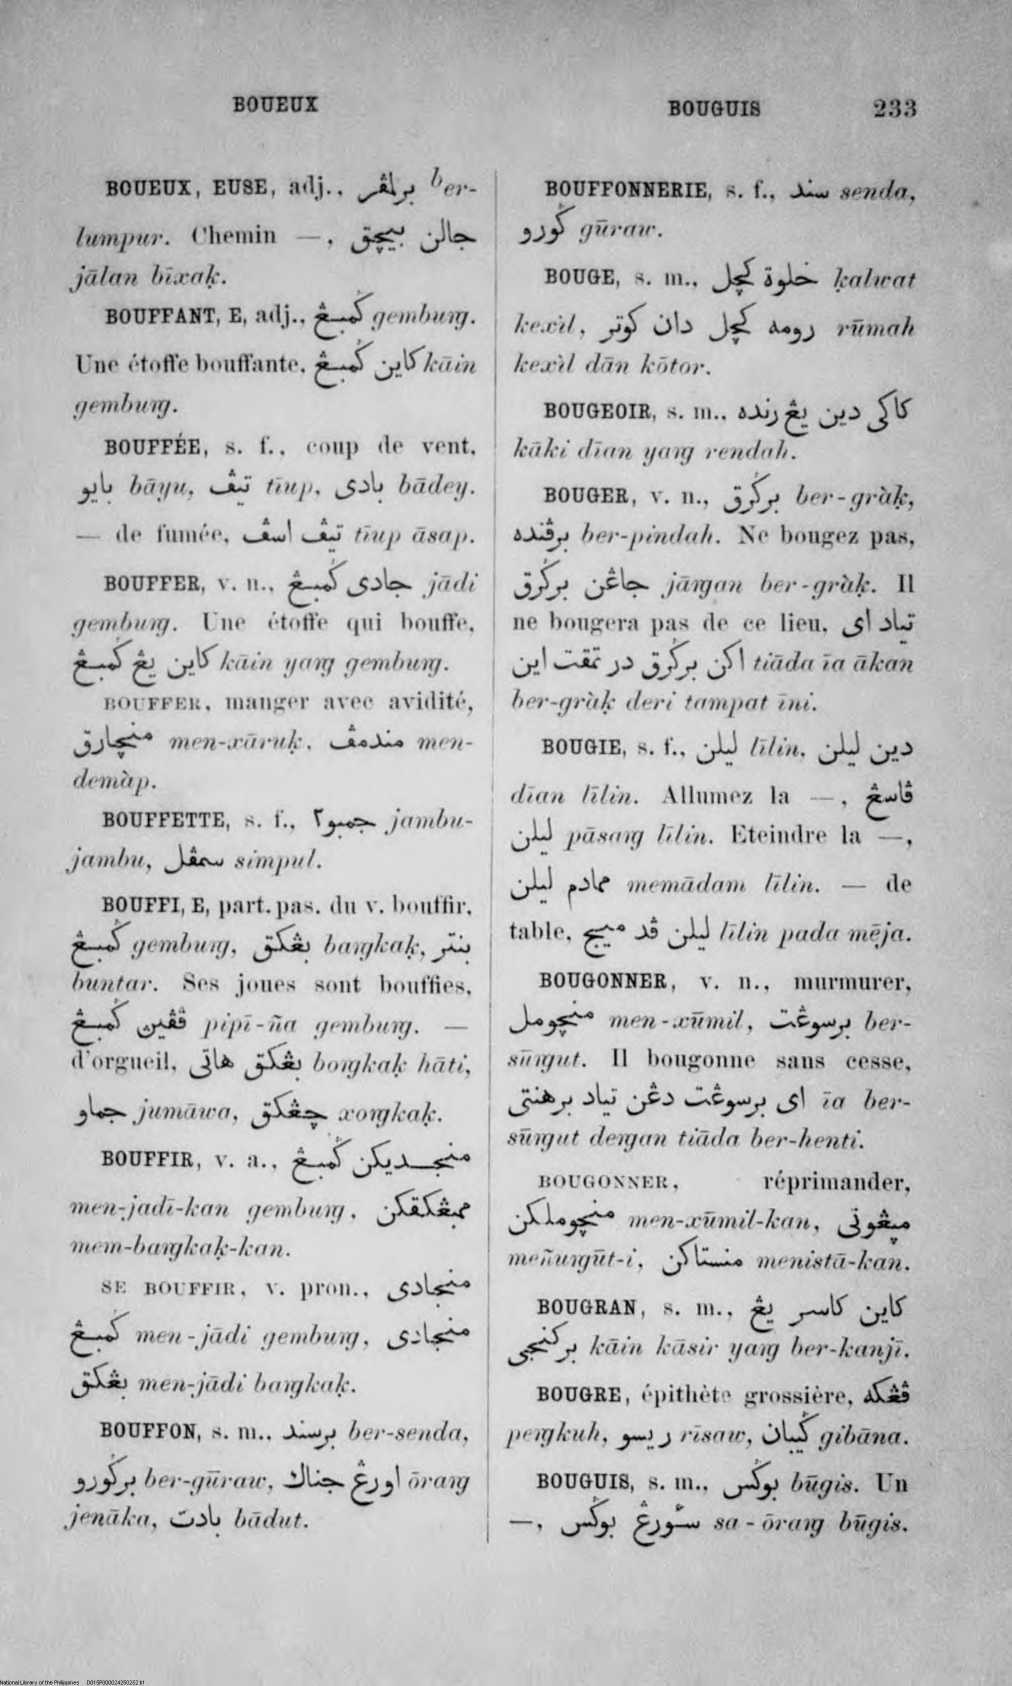 BOUEUX
BOUGUIS 233
BOUEUX, EUSE, adj., برلمڤر ber-
lumpur. Chemin —, جالن بيچق
jālan bīxaḳ.
BOUFFANT, E, adj., ݢمبڠ gemburŋ.
Une étoffe bouffante, كاين ݢمبڠ kāin
gemburŋ.
BOUFFÉE, s. f., coup de vent,
بايو bāyu, تيڤ tīup, بادى bādey.
— de fumée, تيڤ اسڤ tīup āsap.
BOUFFER, v. n., جادى ݢمبڠ jādi
gemburŋ. Une étoffe qui bouffe,
كاين يڠ ݢمبڠ kāin yaŋ gemburŋ.
BOUFFER, manger avec avidité,
منچارق men-xāruḳ, مندمڤ men-
demàp.
BOUFFETTE, s. f., جمبو٢ jambu-
jambu, سمڤل simpul.
BOUFFI, E, part. pas. du v. bouffir,
ݢمبڠ gemburŋ, بڠكق baŋkaḳ, بنتر
buntar. Ses joues sont bouffies,
ڤڤين ݢمبڠ pipī-ña gemburŋ. —
d'orgueil, بڠكق هاتى boŋkaḳ hāti,
جماو jumāwa, چڠكق xoŋkaḳ.
BOUFFIR, v. a., منجديكن ݢمبڠ
men-jadī-kan gemburŋ, ممبڠكقكن
mem-baŋkaḳ-kan.
SE BOUFFIR, v. pron., منجادى
ݢمبڠ men-jādi gemburŋ, منجادى
بڠكق men-jādi baŋkaḳ.
BOUFFON, s. m., برسند ber-senda,
برݢورو ber-gūraw, اورڠ جناك ōraŋ
jenāka, بادت bādut.
BOUFFONNERIE, s. f., سند senda,
ݢورو gūraw.
BOUGE, s. m., خلوة كچل ḳalwat
kexìl, رومه كچل دان كوتر rūmah
kexìl dān kōtor.
BOUGEOIR, s. m., كاكى دين يڠ رنده
kāki dīan yaŋ rendah.
BOUGER, v. n., برݢرق ber-gràḳ,
برڤنده ber-pindah. Ne bougez pas,
جاڠن برݢرق jāŋan ber-gràḳ. Il
ne bougera pas de ce lieu, تياد اى
اكن برݢرق در تمڤت اين tiāda īa ākan
ber-gràḳ deri tampat īni.
BOUGIE, s. f., ليلن līlin, دين ليلن
dīan līlin. Allumez la —, ڤاسڠ
ليلن pāsaŋ līlin. Eteindre la —,
ممادم ليلن memādam līlin. — de
table, ليلن ڤد ميج līlin pada mēja.
BOUGONNER, v. n., murmurer,
منچومل men-xūmil, برسوڠت ber-
sūŋut. Il bougonne sans cesse,
اى برسوڠت دڠن تياد برهنتى īa ber-
sūŋut deŋan tiāda ber-henti.
BOUGONNER, réprimander,
منچوملكن men-xūmil-kan, ميڠوتى
meñuŋūt-i, منستاكن menistā-kan.
BOUGRAN, s. m., كاين كاسر يڠ
بركنجى kāin kāsir yaŋ ber-kanjī.
BOUGRE, épithète grossière, ڤڠكه
peŋkuh, ريسو rīsaw, ݢيبان gibāna.
BOUGUIS, s. m., بوݢس būgis. Un
—, سئورڠ بوݢس sa-ōraŋ būgis.
National Library of the Philippines